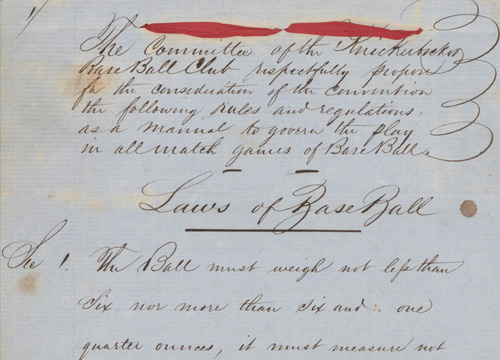 The Committee of the Knickerbocker
Base Ball Club respectfully propose
for the consideration of the convention
the following rules and regulations,
as a manual to govern the play
in all match games of Base Ball.
Laws of Base Ball
Sec 1. The Ball must weigh not less than
six, nor more than six and one
quarter ounces, it must measure not